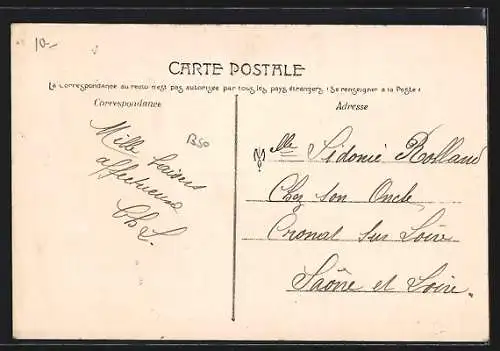 10.-
CARTE POSTALE
La Correspondance au recto n'est pas autorisée par tous les pays étrangers (Se renseigner à la Poste)
Correspondance
Adresse
B50
Mille baisers
affectueux
Ch L.
Mlle Sidonie Rolland
Chez son Oncle
Cronat sur Loire
Saône et Loire.